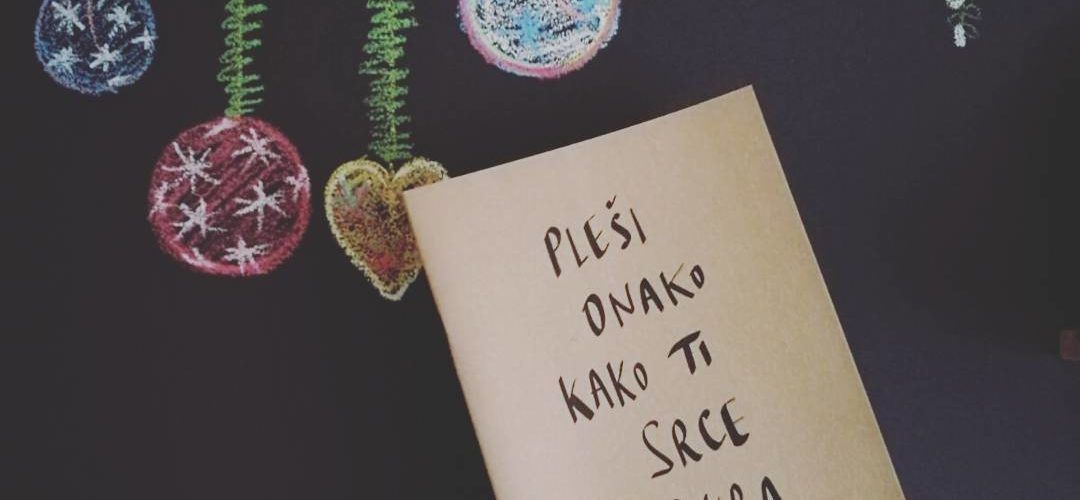 PLEŠI
ONAKO
KAKO TI
SRCE